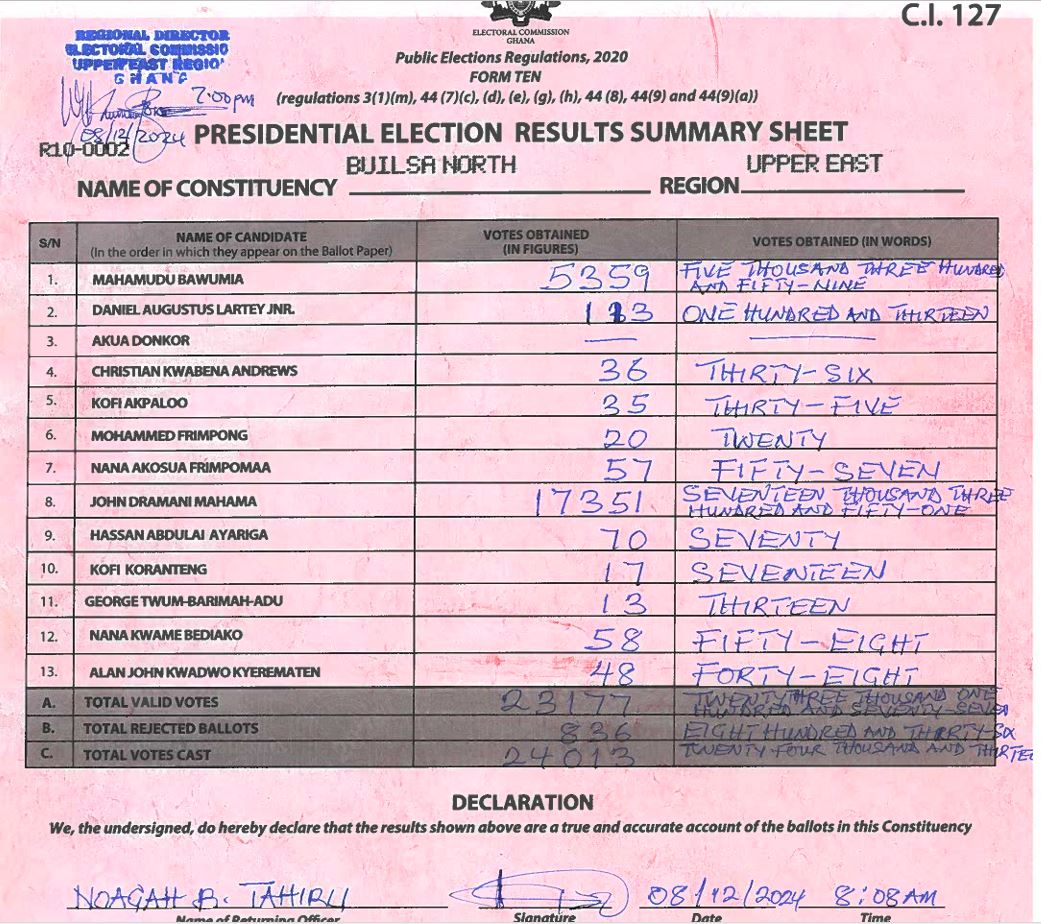 C.I. 127
ELECTORAL COMMISSION
GHANA
REGIONAL DIRECTOR
ELECTORAL COMMISSIO
UPPER EAST REGIO
GHANA
7:00pm
08/12/2024
Public Elections Regulations, 2020
FORM TEN
(regulations 3(1)(m), 44 (7)(c), (d), (e), (g), (h), 44 (8), 44(9) and 44(9)(a))
PRESIDENTIAL ELECTION RESULTS SUMMARY SHEET
R10-0002
NAME OF CONSTITUENCY BUILSA NORTH REGION UPPER EAST
S/N NAME OF CANDIDATE VOTES OBTAINED VOTES OBTAINED (IN WORDS)
(In the order in which they appear on the Ballot Paper) (IN FIGURES)
1. MAHAMUDU BAWUMIA 5359 FIVE THOUSAND THREE HUNDRED
AND FIFTY-NINE
2. DANIEL AUGUSTUS LARTEY JNR. 113 ONE HUNDRED AND THIRTEEN
3. AKUA DONKOR
4. CHRISTIAN KWABENA ANDREWS 36 THIRTY-SIX
5. KOFI AKPALOO 35 THIRTY-FIVE
6. MOHAMMED FRIMPONG 20 TWENTY
7. NANA AKOSUA FRIMPOMAA 57 FIFTY-SEVEN
8. JOHN DRAMANI MAHAMA 17351 SEVENTEEN THOUSAND THREE
HUNDRED AND FIFTY-ONE
9. HASSAN ABDULAI AYARIGA 70 SEVENTY
10. KOFI KORANTENG 17 SEVENTEEN
11. GEORGE TWUM-BARIMAH-ADU 13 THIRTEEN
12. NANA KWAME BEDIAKO 58 FIFTY-EIGHT
13. ALAN JOHN KWADWO KYEREMATEN 48 FORTY-EIGHT
A. TOTAL VALID VOTES 23177 TWENTY THREE THOUSAND ONE
HUNDRED AND SEVENTY-SEVEN
B. TOTAL REJECTED BALLOTS 836 EIGHT HUNDRED AND THIRTY-SIX
C. TOTAL VOTES CAST 24013 TWENTY FOUR THOUSAND AND THIRTEE
DECLARATION
We, the undersigned, do hereby declare that the results shown above are a true and accurate account of the ballots in this Constituency
NOAGAH B. TAHIRU 08/12/2024 8:08AM
Name of Returning Officer Signature Date Time